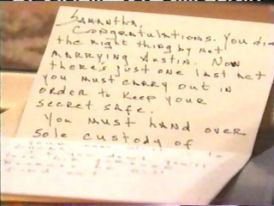 Samantha,
Congratulations. You did
the right thing by not
marrying Austin. Now
there's just one last act
you must carry out in
order to keep your
secret safe.
You must hand over
sole custody of